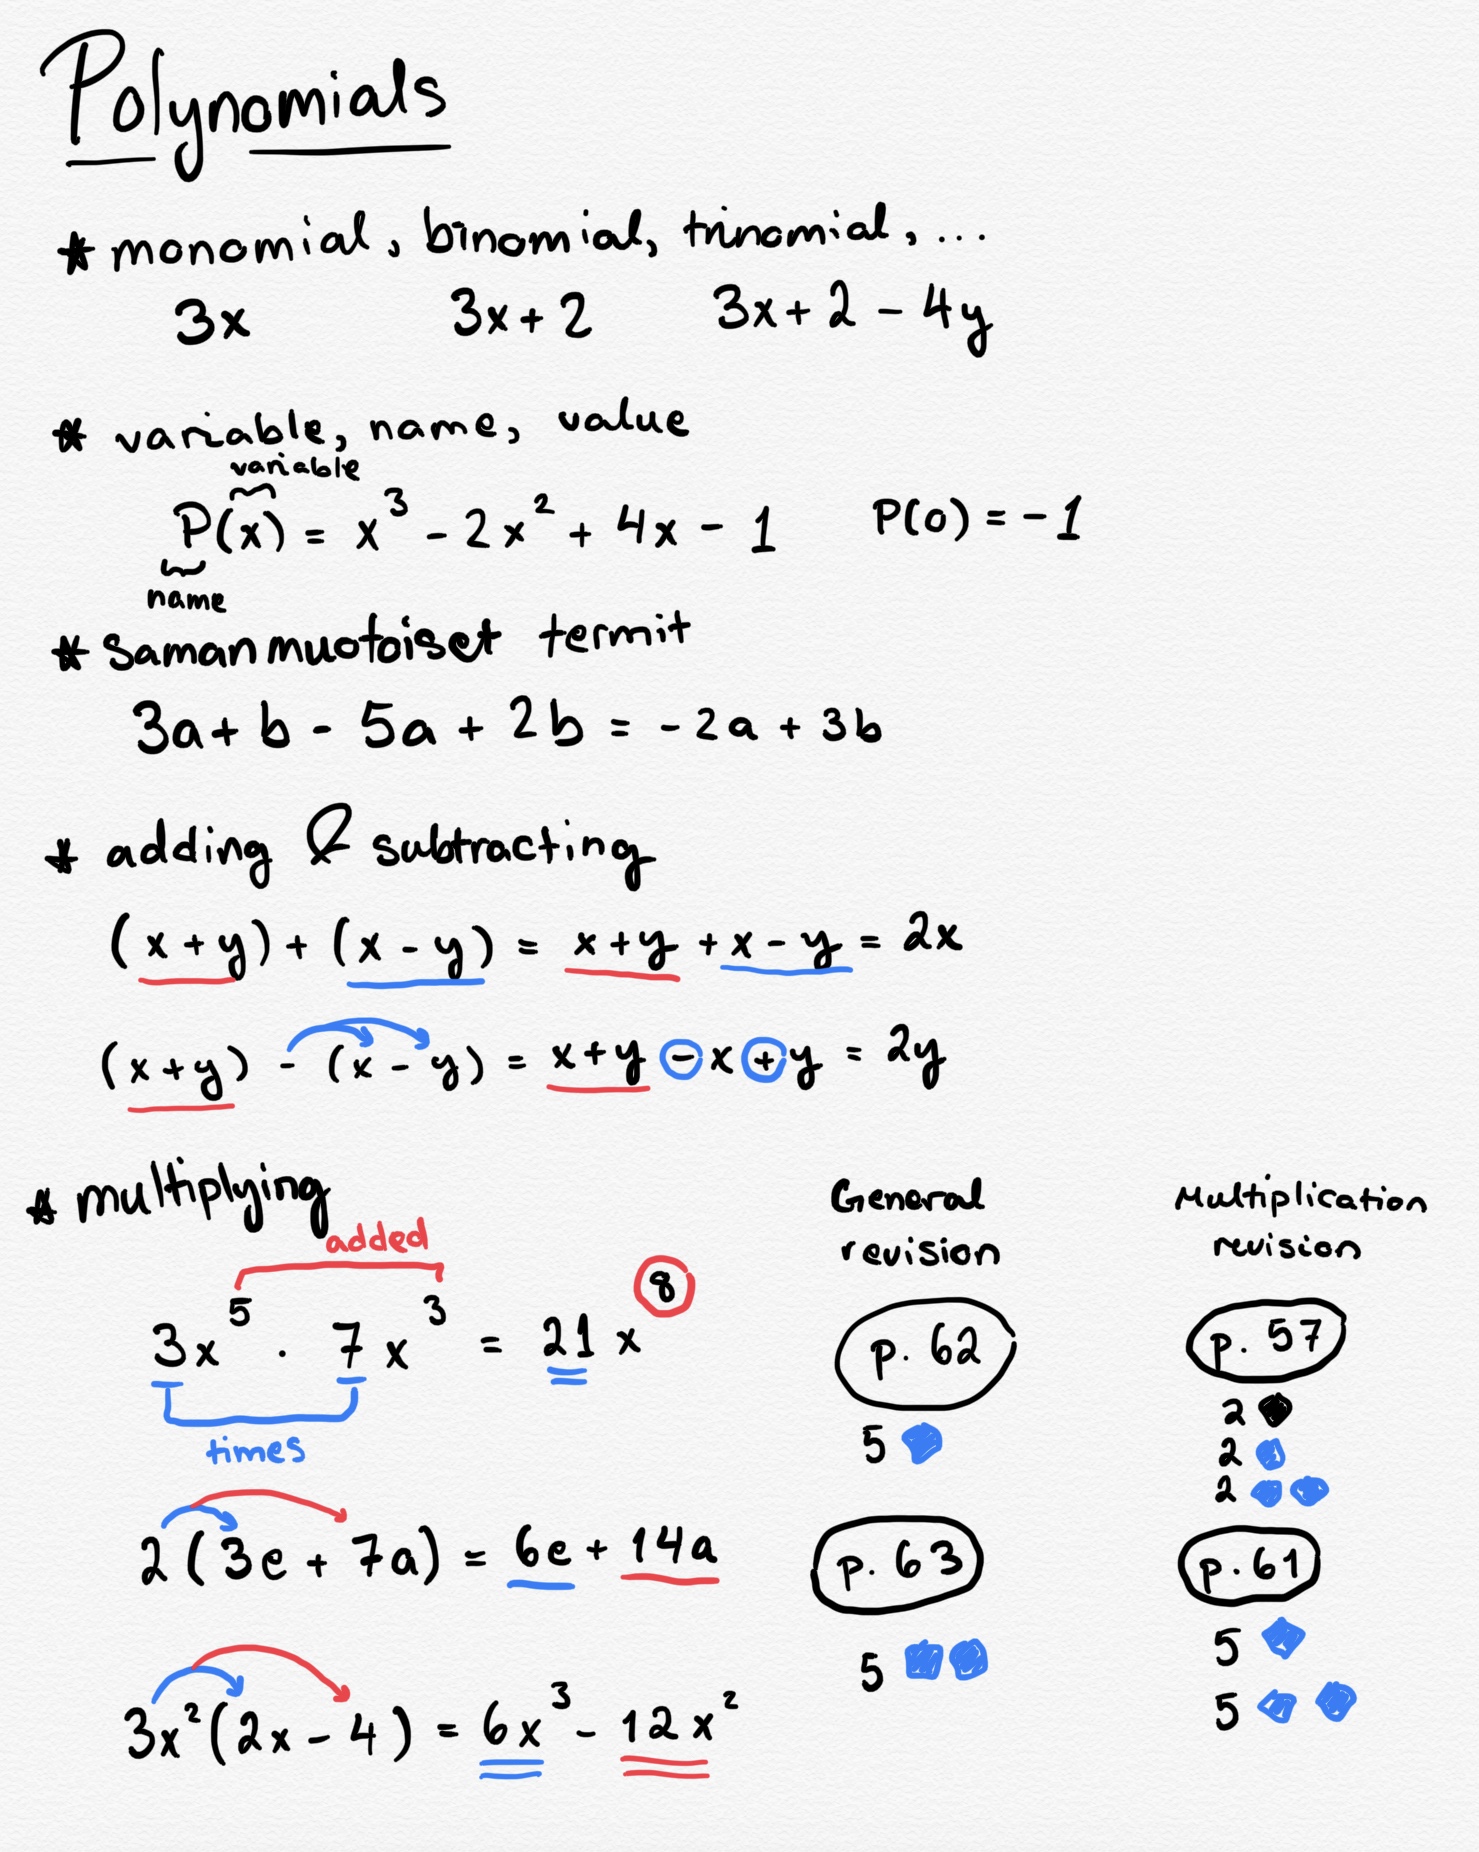 Polynomials
* monomial, binomial, trinomial, ...
3x 3x + 2 3x + 2 - 4y
* variable, name, value
variable
P(x) = x³ - 2x² + 4x - 1 P(0) = -1
name
* Samanmuotoiset termit
3a + b - 5a + 2b = -2a + 3b
* adding & subtracting
(x + y) + (x - y) = x + y + x - y = 2x
(x + y) - (x - y) = x + y - x + y = 2y
* multiplying
added
3x⁵ · 7x³ = 21x⁸
times
2(3e + 7a) = 6e + 14a
3x²(2x - 4) = 6x³ - 12x²
General
revision
p. 62
5
p. 63
5
Multiplication
revision
p. 57
2
2
2
p. 61
5
5